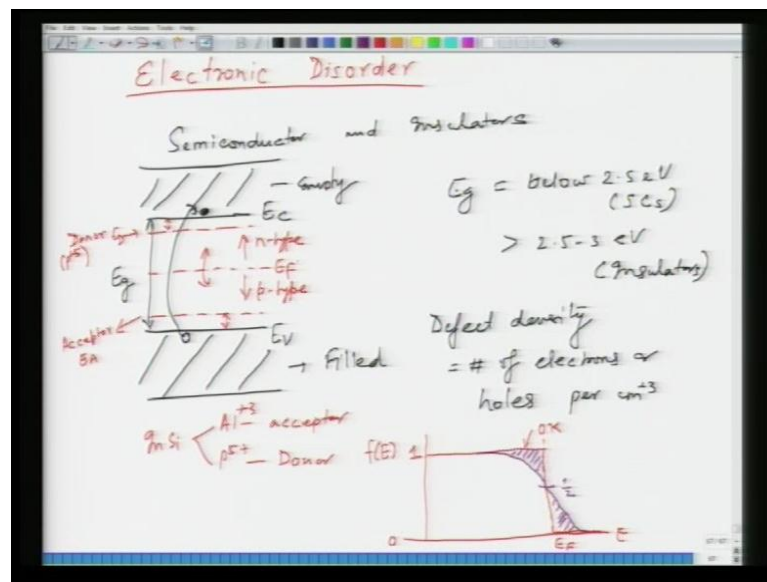 File Edit View Insert Actions Tools Help
Electronic Disorder
Semiconductor and Insulators
Empty
Ec
Donor
(P5)
n-type
EF
p-type
Eg
Acceptor
EA
Ev
Filled
Eg = below 2.5 eV
(SCs)
> 2.5-3 eV
(Insulators)
Defect density
= # of electrons or
holes per cm+3
In Si
Al+3 - acceptor
P5+ - Donor
f(E) 1
0K
1/2
0
EF
E